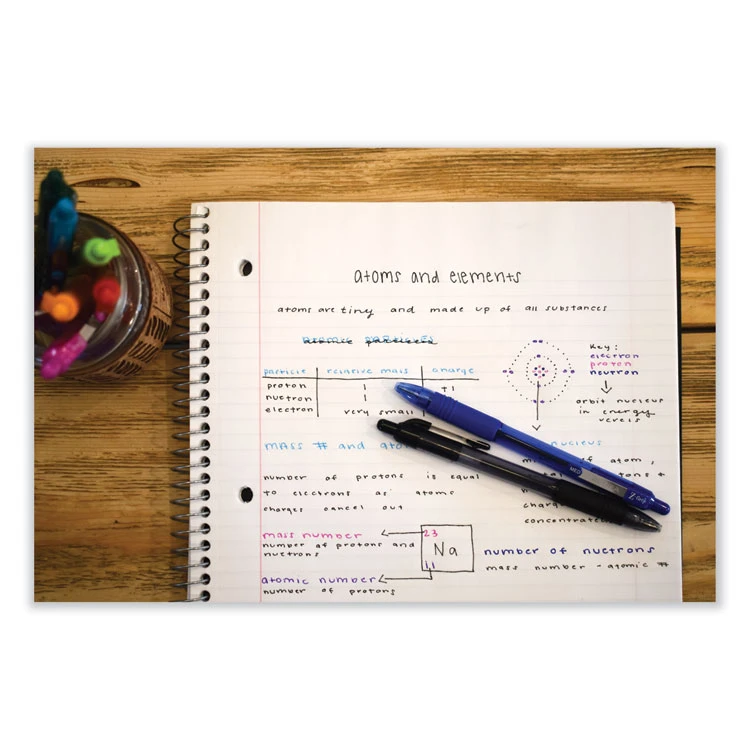 atoms and elements
atoms are tiny and made up of all substances
atomic particles
particle relative mass charge
proton 1 +1
nuetron 1
electron very small
Key:
electron
proton
neutron
orbit nucleus
in energy
mass # and
nucleus
of atom,
number of protons is equal
to electrons as atoms
charges cancel out
concentrate
mass number
number of protons and
nuetrons
23
Na
11
atomic number
number of protons
number of nuetrons
mass number - atomic #
MED
Z-Grip